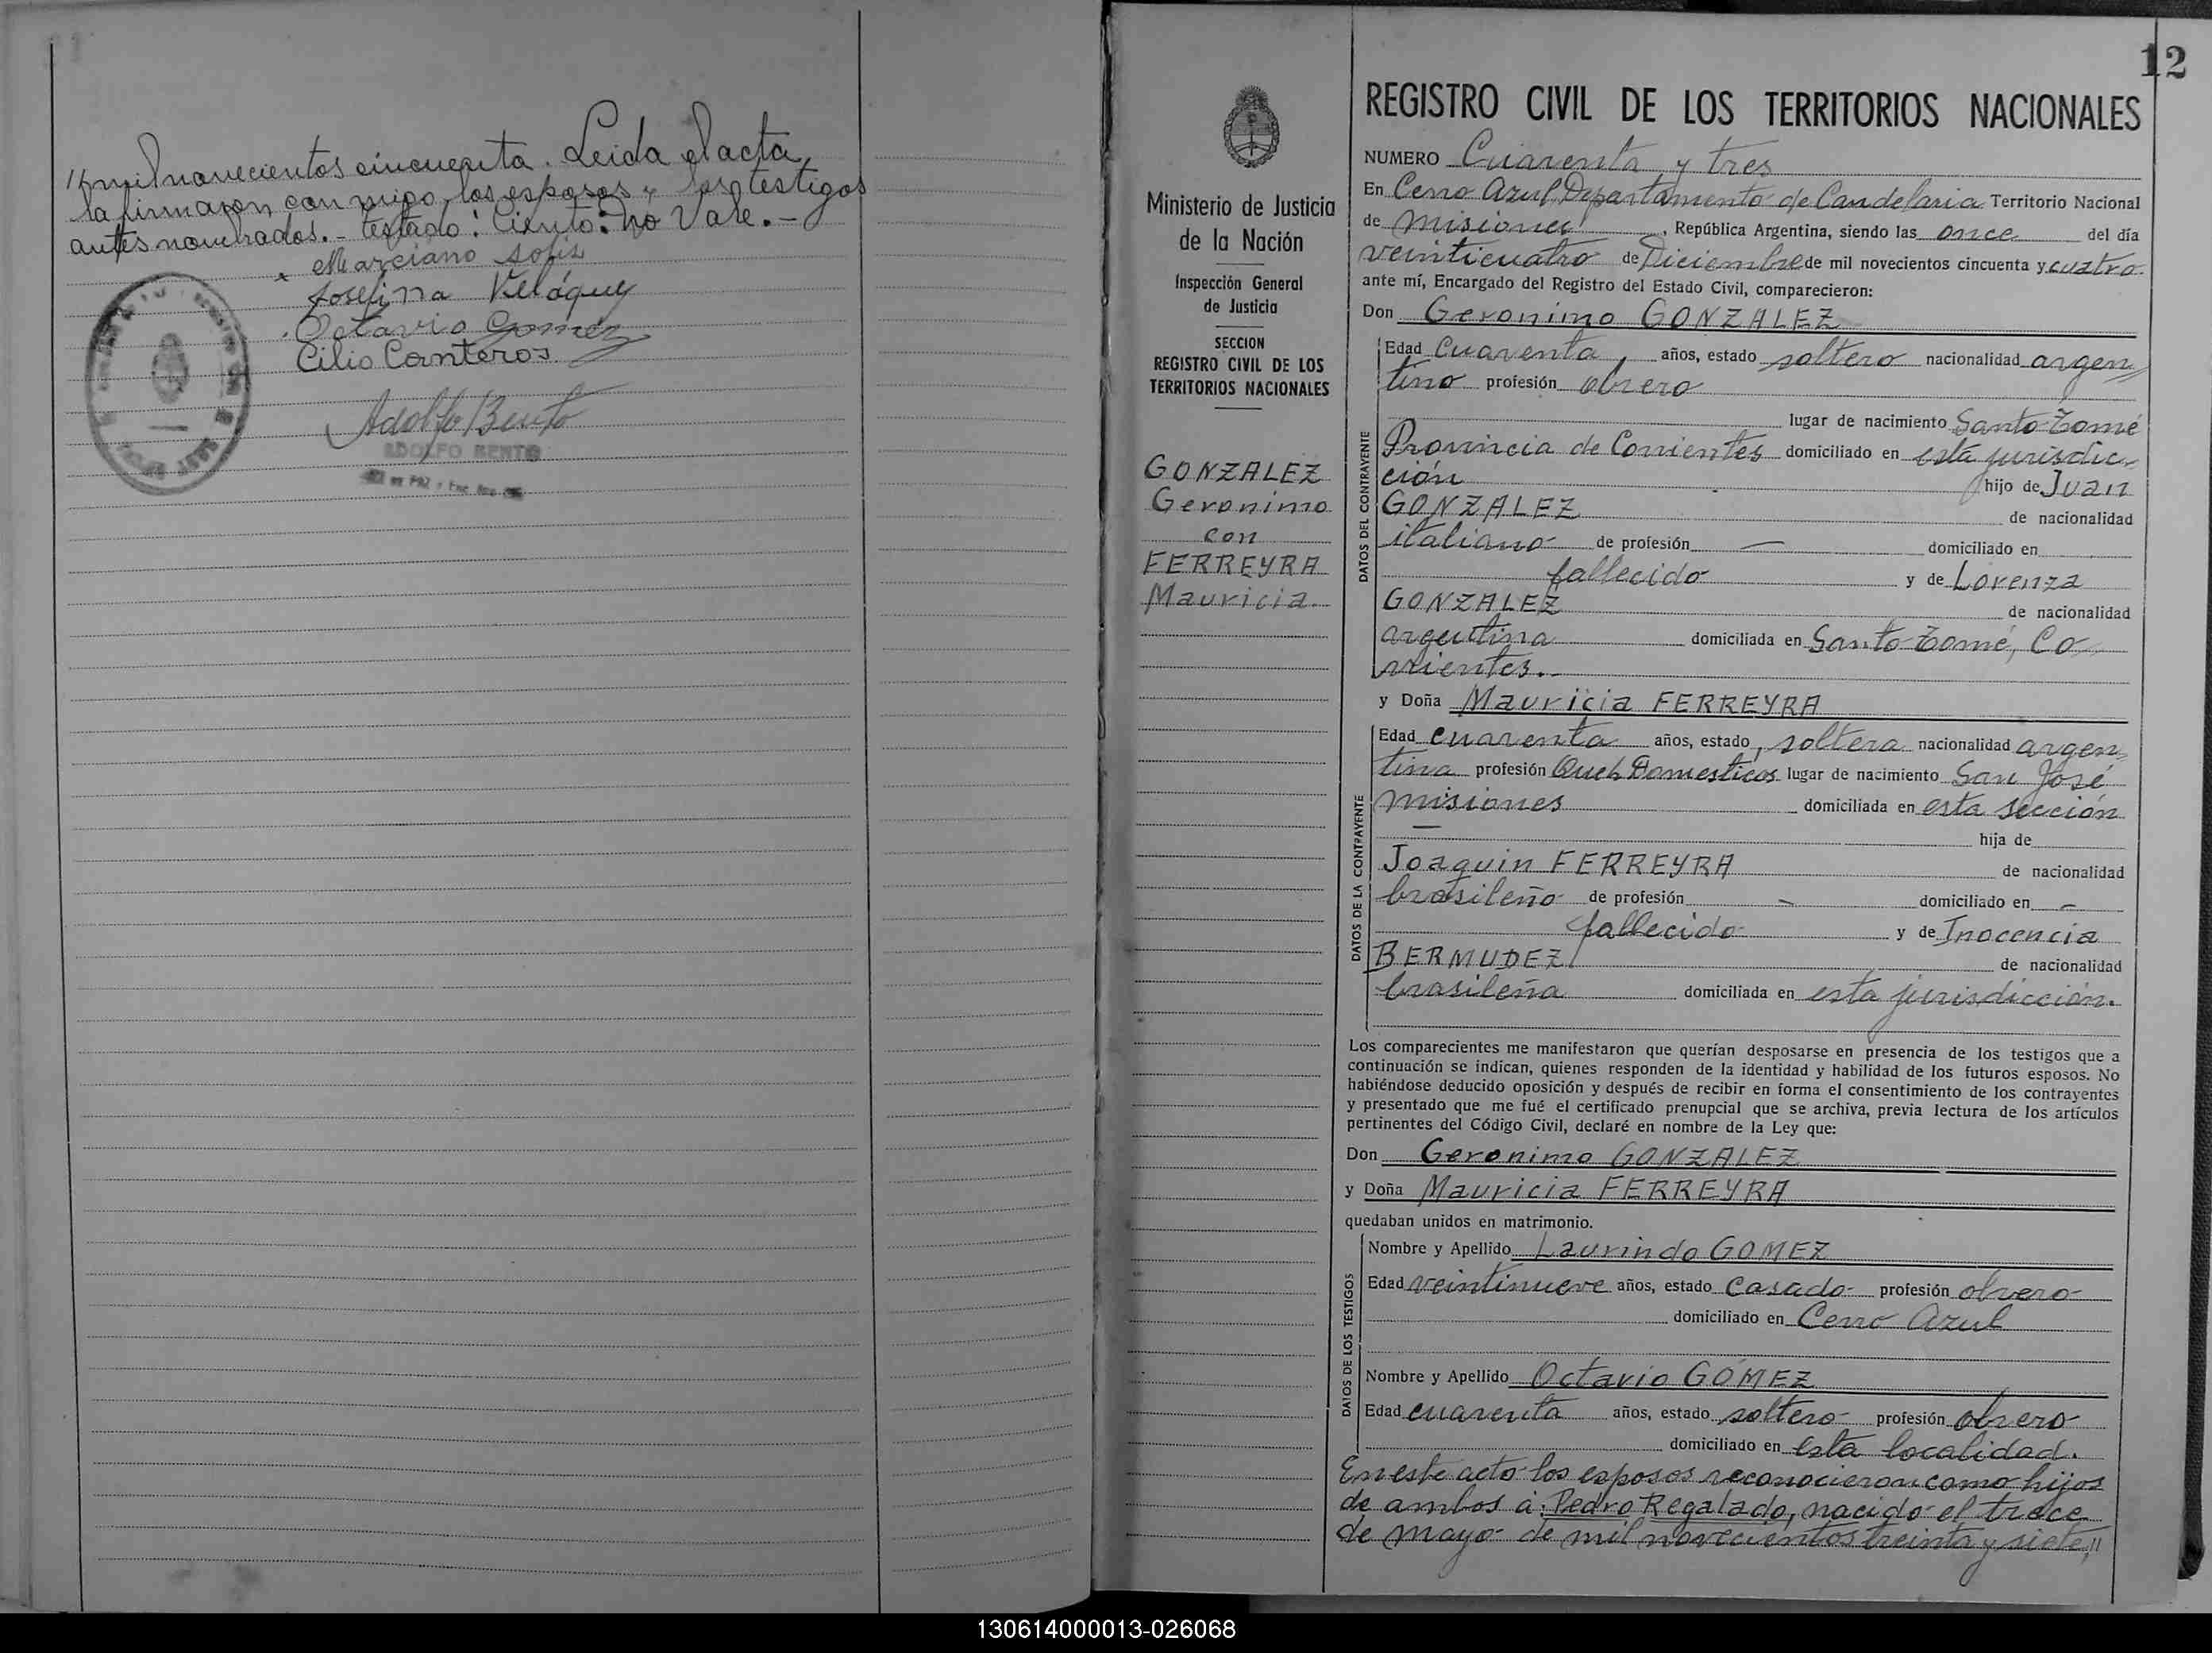 "mil novecientos cincuenta. Leida el acta,
la firmaron conmigo los esposos y los testigos
antes nombrados.- Testado: Ciento: no Vale.-
Marciano Solis
Josefina Velóquez
Octavio Gomez
Cilio Canteros
Adolfo Bento
ADOLFO BENTO
12
REGISTRO CIVIL DE LOS TERRITORIOS NACIONALES
Ministerio de Justicia
de la Nación
Inspección General
de Justicia
SECCION
REGISTRO CIVIL DE LOS
TERRITORIOS NACIONALES
GONZALEZ
Geronimo
con
FERREYRA
Mauricia
NUMERO Cuarenta y tres
En Cerro Azul, Departamento de Candelaria Territorio Nacional
de Misiones, República Argentina, siendo las once del día
veinticuatro de Diciembre de mil novecientos cincuenta y cuatro
ante mí, Encargado del Registro del Estado Civil, comparecieron:
Don Geronimo GONZALEZ
DATOS DEL CONTRAYENTE
Edad Cuarenta años, estado soltero nacionalidad argen
tino profesión obrero
lugar de nacimiento Santo Tomé
Provincia de Corrientes domiciliado en esta jurisdic-
ción hijo de Juan
GONZALEZ de nacionalidad
italiano de profesión — domiciliado en
fallecido y de Lorenza
GONZALEZ de nacionalidad
argentina domiciliada en Santo Tomé, Co-
rrientes.-
y Doña Mauricia FERREYRA
DATOS DE LA CONTRAYENTE
Edad cuarenta años, estado soltera nacionalidad argen
tina profesión Queh. Domesticos lugar de nacimiento San José
Misiones domiciliada en esta sección
— hija de
Joaquin FERREYRA de nacionalidad
brasileño de profesión - domiciliado en -
fallecido y de Inocencia
BERMUDEZ de nacionalidad
brasileña domiciliada en esta jurisdicción.
Los comparecientes me manifestaron que querían desposarse en presencia de los testigos que a
continuación se indican, quienes responden de la identidad y habilidad de los futuros esposos. No
habiéndose deducido oposición y después de recibir en forma el consentimiento de los contrayentes
y presentado que me fué el certificado prenupcial que se archiva, previa lectura de los artículos
pertinentes del Código Civil, declaré en nombre de la Ley que:
Don Geronimo GONZALEZ
y Doña Mauricia FERREYRA
quedaban unidos en matrimonio.
DATOS DE LOS TESTIGOS
Nombre y Apellido Laurindo GOMEZ
Edad veintinueve años, estado Casado profesión obrero
domiciliado en Cerro Azul
Nombre y Apellido Octavio GÓMEZ
Edad cuarenta años, estado soltero profesión obrero
domiciliado en Esta localidad.
En este acto los esposos reconocieron como hijos
de ambos a: Pedro Regalado, nacido el trece
de mayo de mil novecientos treinta y siete,"
130614000013-026068